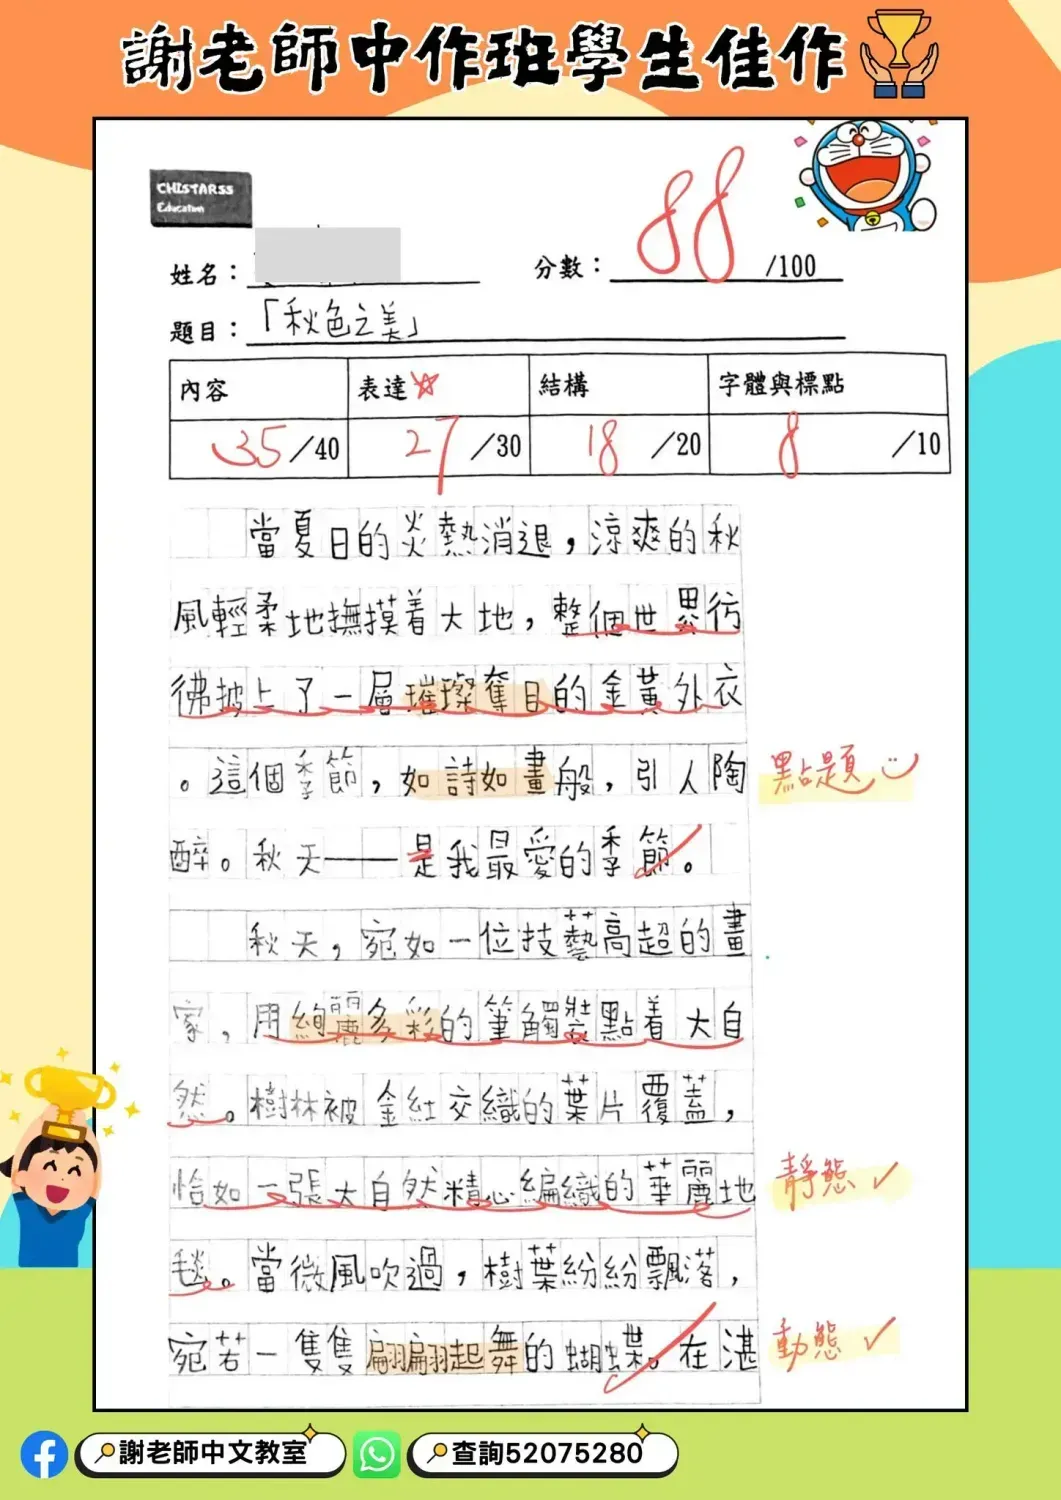 謝老師中作班學生佳作
CHISTARSS
Education
姓名：
分數：88/100
題目：「秋色之美」
內容 表達☆ 結構 字體與標點
35/40 27/30 18/20 8/10
當夏日的炎熱消退，涼爽的秋
風輕柔地撫摸着大地，整個世界彷
彿披上了一層璀璨奪目的金黃外衣
。這個季節，如詩如畫般，引人陶
點題
醉。秋天——是我最愛的季節。
秋天，宛如一位技藝高超的畫
家，用絢麗多彩的筆觸裝點着大自
然。樹林被金紅交織的葉片覆蓋，
恰如一張大自然精心編織的華麗地
靜態✓
毯。當微風吹過，樹葉紛紛飄落，
宛若一隻隻翩翩起舞的蝴蝶。在湛
動態✓
謝老師中文教室
查詢52075280